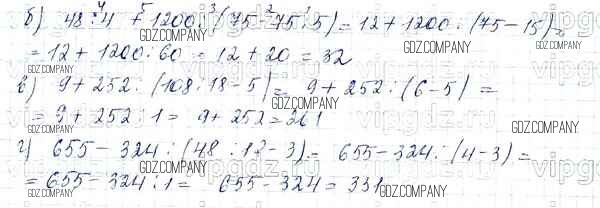 б) 48 : 4 + 1200 : (75 - 75 : 5) = 12 + 1200 : (75 - 15) =
= 12 + 1200 : 60 = 12 + 20 = 32
в) 9 + 252 : (108 : 18 - 5) = 9 + 252 : (6 - 5) =
= 9 + 252 : 1 = 9 + 252 = 261
г) 655 - 324 : (48 : 12 - 3) = 655 - 324 : (4 - 3) =
= 655 - 324 : 1 = 655 - 324 = 331
GDZ.COMPANY
vipgdz.ru